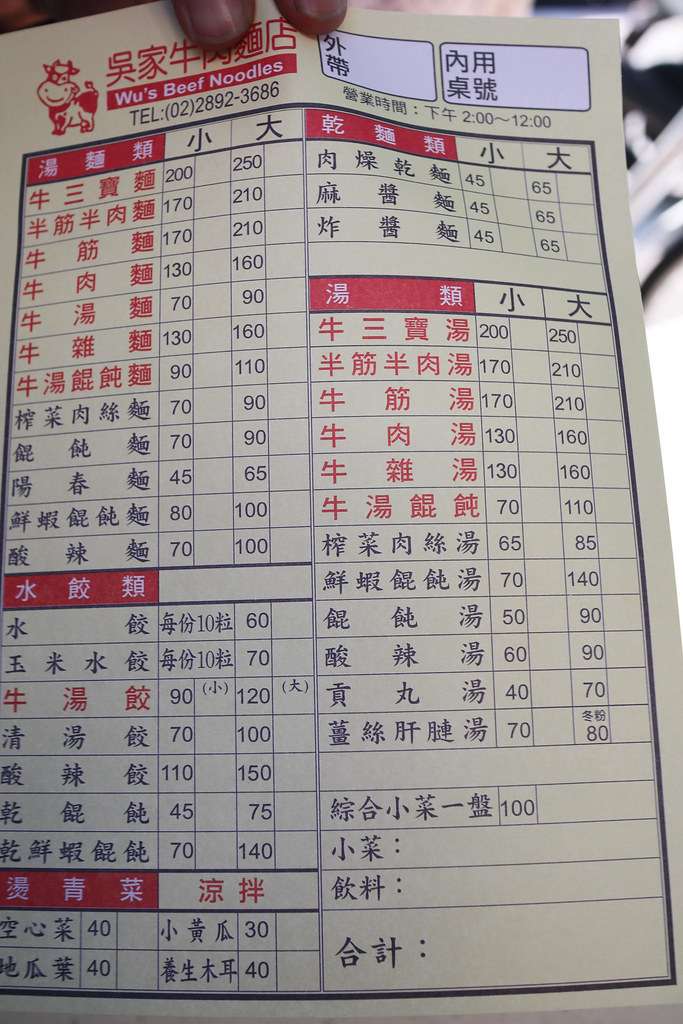 吳家牛肉麵店
Wu's Beef Noodles
TEL:(02)2892-3686
外帶
內用桌號
營業時間：下午 2:00～12:00
湯麵類 小 大
牛三寶麵 200 250
半筋半肉麵 170 210
牛筋麵 170 210
牛肉麵 130 160
牛湯麵 70 90
牛雜麵 130 160
牛湯餛飩麵 90 110
榨菜肉絲麵 70 90
餛飩麵 70 90
陽春麵 45 65
鮮蝦餛飩麵 80 100
酸辣麵 70 100
水餃類
水餃 每份10粒 60
玉米水餃 每份10粒 70
牛湯餃 90 (小) 120 (大)
清湯餃 70 100
酸辣餃 110 150
乾餛飩 45 75
乾鮮蝦餛飩 70 140
燙青菜 涼拌
空心菜 40 小黃瓜 30
地瓜葉 40 養生木耳 40
乾麵類 小 大
肉燥乾麵 45 65
麻醬麵 45 65
炸醬麵 45 65
湯類 小 大
牛三寶湯 200 250
半筋半肉湯 170 210
牛筋湯 170 210
牛肉湯 130 160
牛雜湯 130 160
牛湯餛飩 70 110
榨菜肉絲湯 65 85
鮮蝦餛飩湯 70 140
餛飩湯 50 90
酸辣湯 60 90
貢丸湯 40 70
薑絲肝腱湯 70 冬粉 80
綜合小菜一盤 100
小菜：
飲料：
合計：